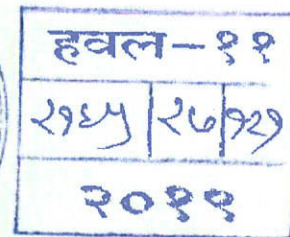 हवल-११
२१६५ २७ १२१
२०१९